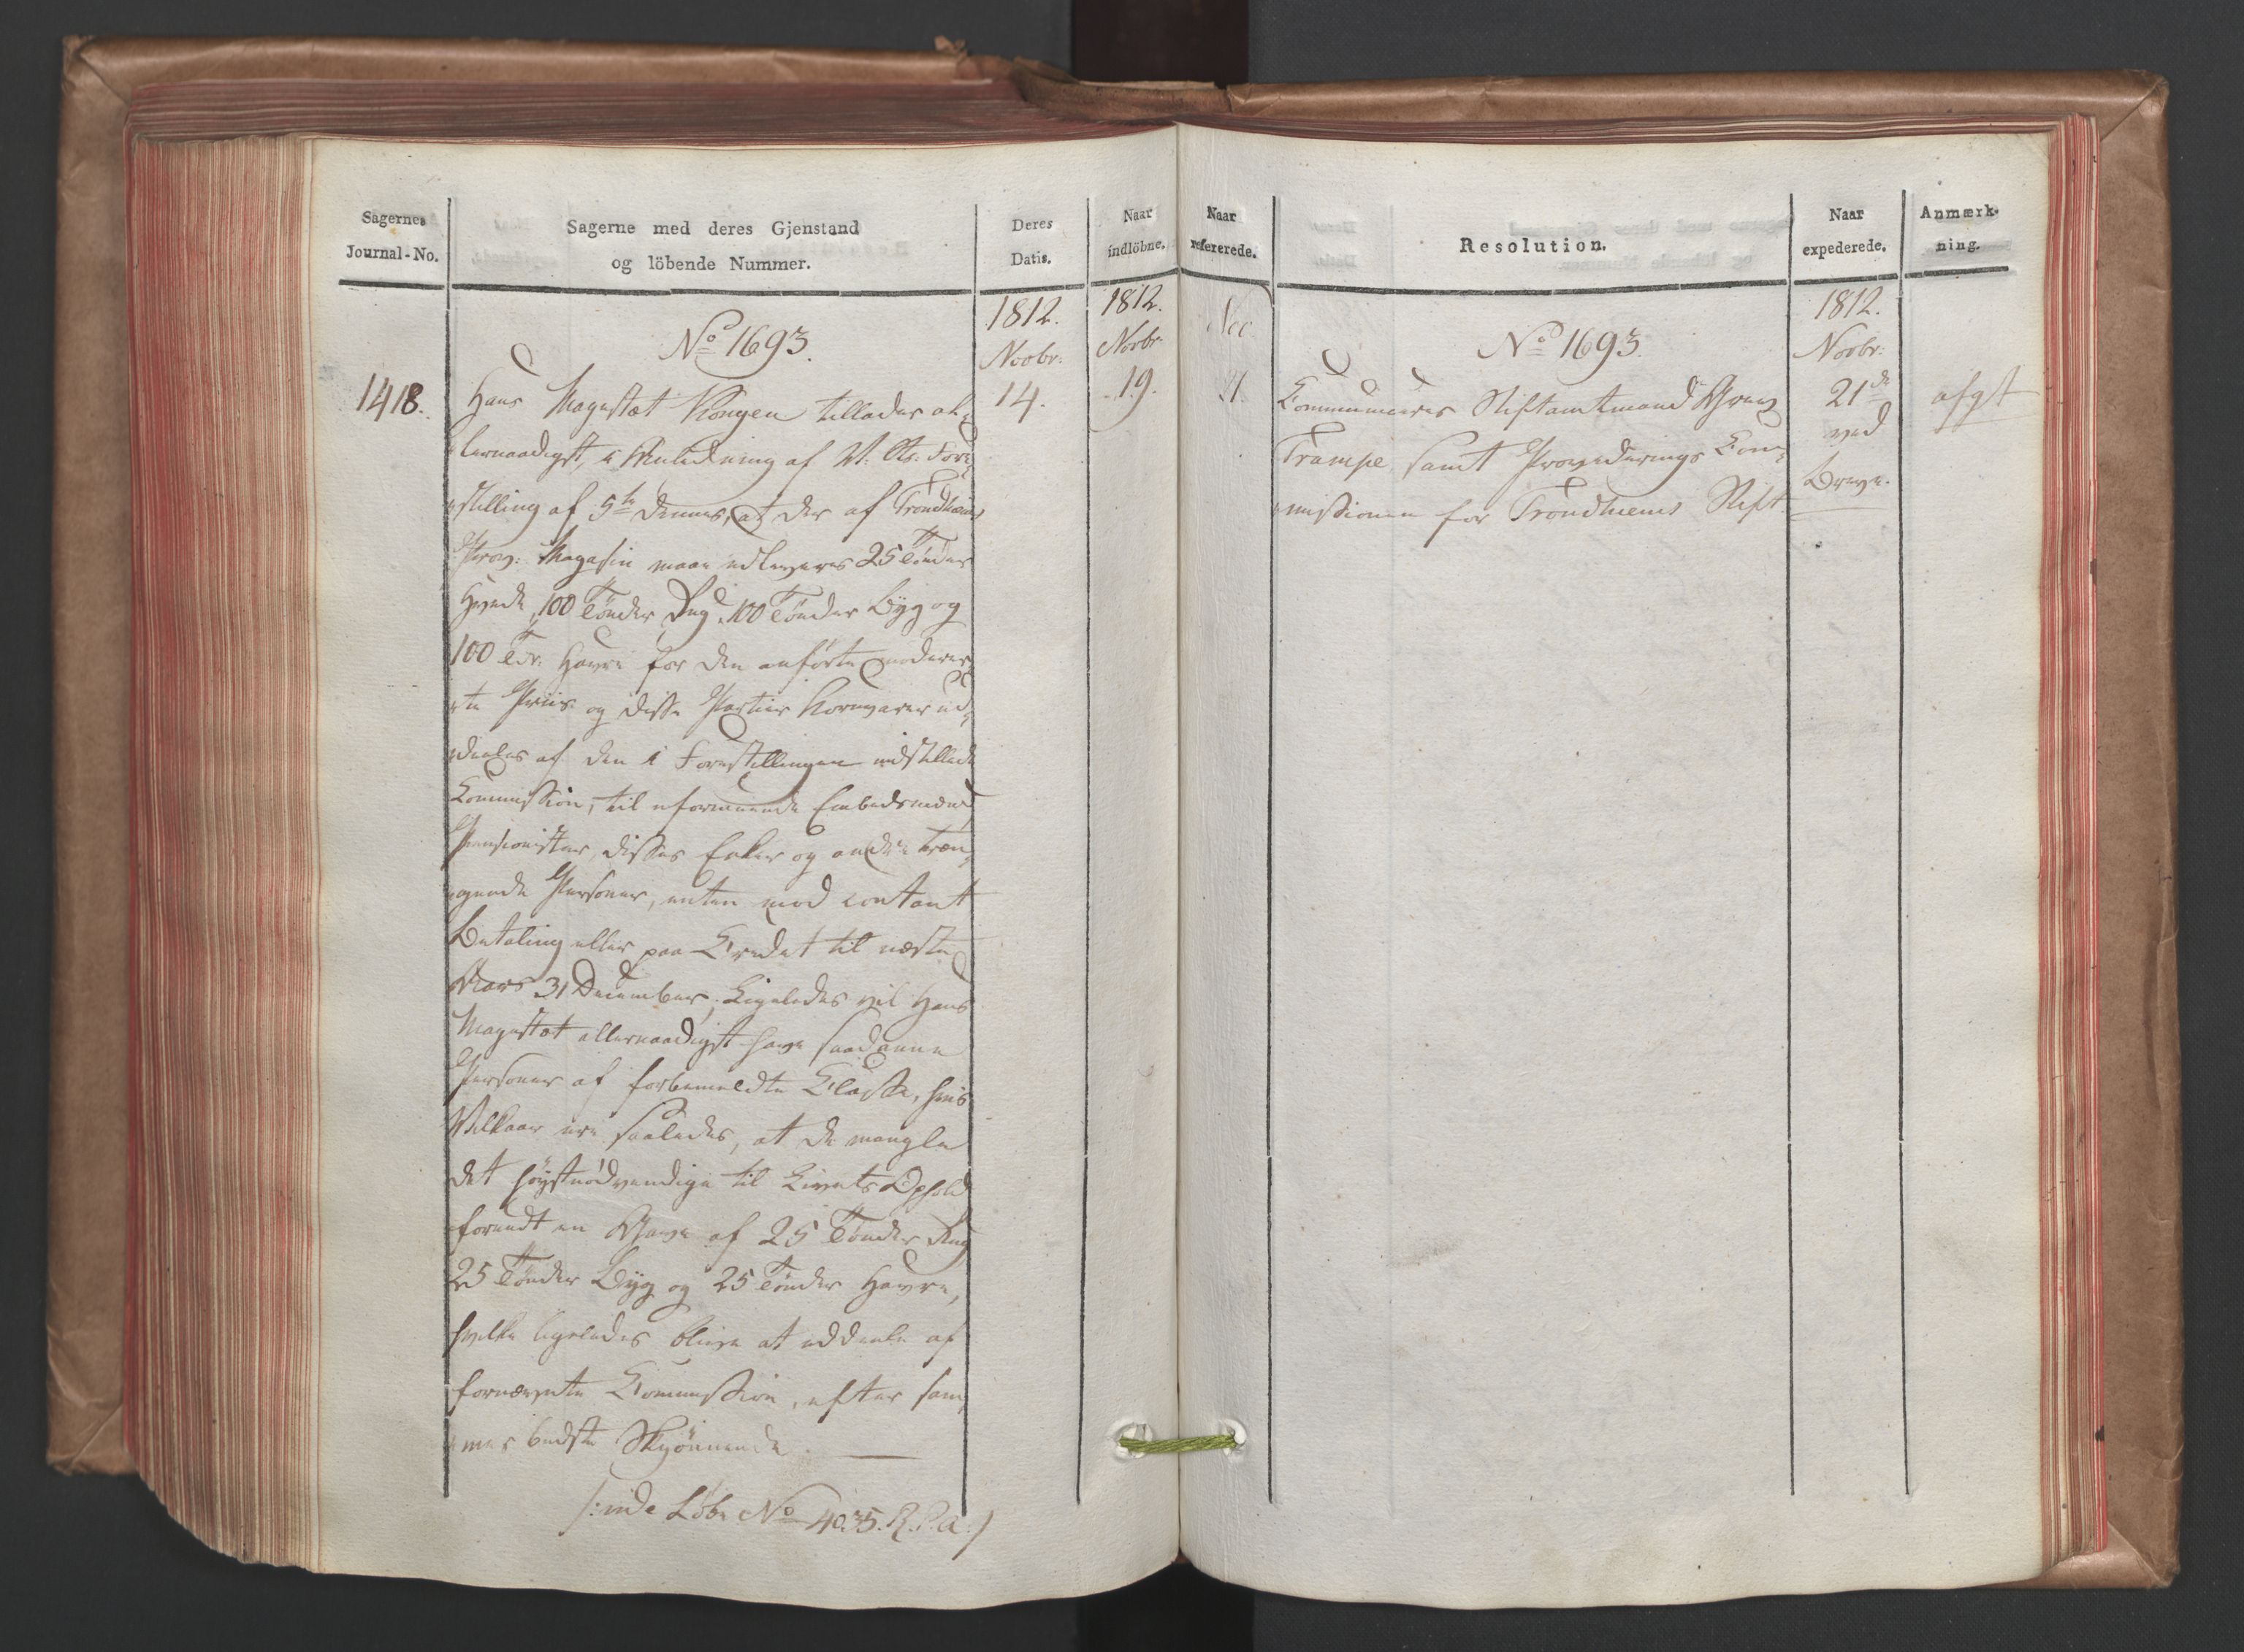 Sagernes
Journal-No.
Sagerne med deres Gjenstand
og löbende Nummer.
Deres
Datis.
Naar
indlöbne.
1812.
Novbr:
1812.
Novbr:
No 1693.
1418.
14.
19.
Hans Majestæt Kongen tillader al-
lernaadigst, i Anledning af
stilling af 5te dennes, at der af Trondhiems
Prov: Magasin maae udleveres 25 Tönder
Hvede, 100 Tönder Rug, 100 Tönder Byg og
100 Tdr. Havre for den anförte moderer-
te Priis og disse Partier Kornvarer ud-
deeles af den i Forestillingen indstillede
Commission, til uformuende Embedsmænd,
Pensionister, disses Enker og andre træn-
gende Personer, enten mod contant
Betaling eller paa Credit til næste
Aars 31 December; Ligeledes vil Hans
Majestæt allernaadigst have saadanne
Personer af forbemeldte Classe, hvis
Vilkaar ere saaledes, at de mangle
det höystnödvendige til Livets Ophold
forundt en Gave af 25 Tönder Rug
25 Tönder Byg og 25 Tönder Havre,
hvilke ligeledes blive at uddeele af
fornævnte Commission, efter sam-
mes bedste Skjönnende.
/: vide Löbe No 4035. R. P. A:/
Naar
refererede.
Resolution.
Naar
expederede.
Anmærk-
ning.
Nov
1812.
Novbr:
No 1693.
21
21de
ved
Breve.
afgt
Communiceres Stiftamtmand Grev
Trampe, samt Provederings Com-
missionen for Trondhiems Stift.